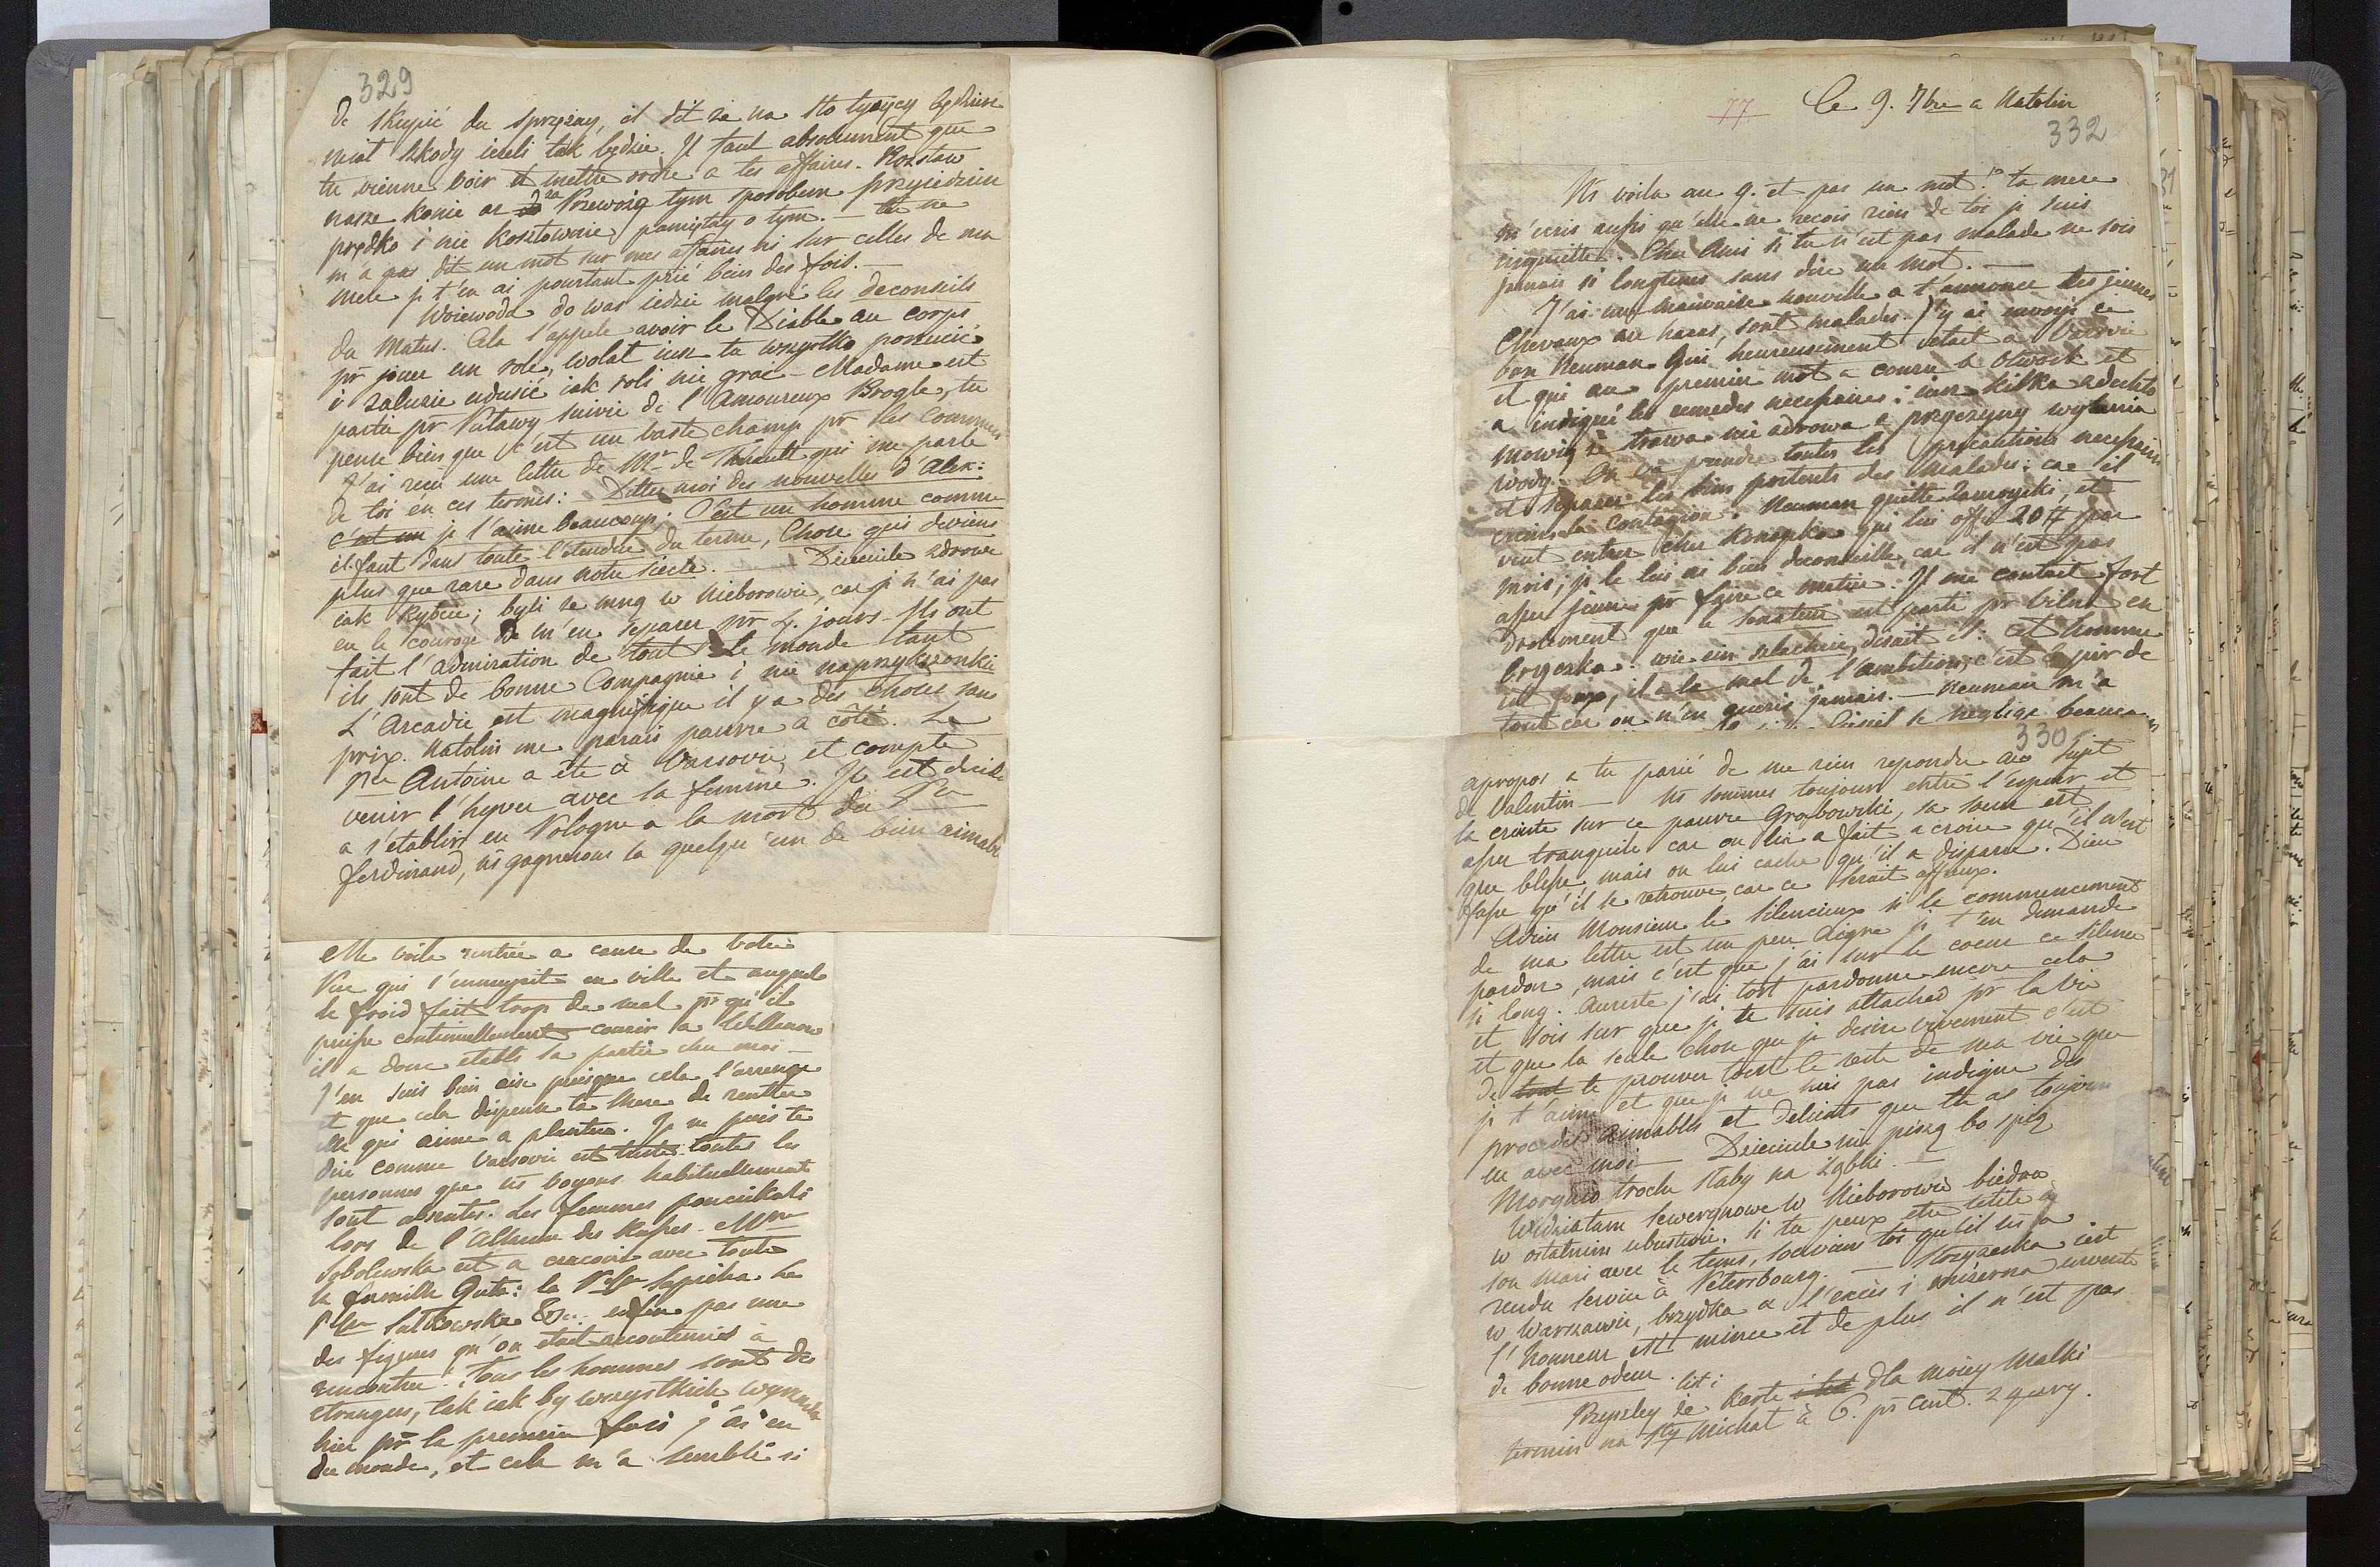 329
de skupić du sprzęzay, il dit że na sto tysięcy będzien
miał szkody ieżeli tak będzie. Il faut absolument que
tu vienne voir et mettre ordre a tes affaires. Rozstaw
nasze konie az za Przewoźą tym sposobem przyiedziem
prędko i nie kosztownie, pamiętay o tym. — tu ne
m'a pas dit un mot sur mes affaires ni sur celles de ma
mere je t'en ai pourtant prié bien des fois. —
Woiewoda do was iedzie malgré les deconseils
du Matus. Cela l'appele avoir le Diable au corps
pr jouer un role, wolał iusz tu wszystko porzucić
i zaluzie udusić iak roli nie grać — Madame est
partie pr Puławy suivie de l'Amoureux Brogle, tu
pense bien que c'est un vaste champ pr les Commerages
J'ai reçu une lettre de Mr de Thiault qui me parle
de toi en ces termes: Dittes moi des nouvelles d'Alex:
c'est un je l'aime beaucoup; C'est un homme comme
il faut dans toute l'étendue du terme, Chose qui deviens
plus que rare dans notre siecle. — Dziecinki zdrowe
iak Rybcie; byli ze mną w Nieborowie, car je n'ai pas
eu le courage de m'en séparer pr 4. jours — Ils ont
fait l'admiration de tout le monde tant
ils sont de bonne Compagnie i nie naprzykrzonkie
L'Arcadie est magnifique il y a des choses sans
prix. Natolin me parais pauvre a côté. Le
Pce Antoine a été à Varsovie, et compte
venir l'hyver avec sa femme. Il est decidé
a s'établir en Pologne a la mort du Pce
Ferdinand, ns gagnerons la quelqu'un de bien aimable
Me voila rentrée a cause de Votre
Pere qui s'ennuyait en ville et auquel
le froid fait trop de mal pr qu'il
puisse continuellement courir a Willanow
il a donc etabli sa partie chez moi —
J'en suis bien aise puisque cela l'arrange
et que cela dispense ta Mere de rentrer
elle qui aime a planter. Je ne puis te
dire comme Varsovie est triste toutes les
personnes que ns voyons habituellement
sont absentes. Les femmes pouciekali
lors de l'Allarme des Russes — Mme
Sobolewska est a cracovie avec toute
la famille Guta: la Pcesse Sapieha La
Pcesse Sułkowska &c. enfin pas une
des figures qu'on etait accoutumés à
rencontrer. Tous les hommes sont des
etrangers, tak iak by wszystkich
hier pr la premiere fois j'ai eu
du monde, et cela m'a semblé si
77 Ce 9. 7bre a Natolin
332
Ns voila au 9. et pas un mot! ta mere
m'ecris aussi qu'elle ne recois rien de toi je suis
inquiette. Cher Ami si tu n'est pas malade ne sois
jamais si longtems sans dire un mot. —
J'ai une mauvaise nouvelle a t'annoncer les jeunes
Chevaux au haras, sont malades. J'y ai envoyé ce
bon Neuman qui heureusement etait a Varsovie
et qui au premier mot a couru a Otwock et
a indiqué les remedes necessaires; iusz kilka zdechło
mowią że trawa nie zdrowa z przyczyny wylania
wody. On va prendre toutes les precautions necessaires
et separer les biens portents des Malades; car il
crains la contagion. Neuman quitte Zamoyski, et
veut entrer chez Konopka qui lui offre 20 # par
mois; je le lui ai bien deconseillé, car il n'est pas
assez jeune pr faire ce metier. Il me contait fort
drolement que le senateur est parti pr Vilna en
bryczka: wie ein szlachcic, disait il: cet homme
est foux, il a le mal de l'ambition; c'est le pire de
tout car on n'en gueris jamais. — Neuman m'a
330
apropos a tu parié de me rien repondre au sujet
de Valentin — Ns sommes toujours entre l'espoir et
la crainte sur ce pauvre Grabowski, sa soeur est
assez tranquile car on lui a fait acroire qu'il n'est
que blessé, mais on lui cache qu'il a disparu. Dieu
fasse qu'il se retrouve car ce serait affreux.
Adieu Monsieur le silencieux si le commencement
de ma lettre est un peu Aigre je t'en demande
pardon, mais c'est que j'ai sur le coeur ce silence
si long. Aureste j'ai tort pardonne encore cela
et sois sur que je te suis attaché pr la vie
et que la seule chose que je desire vivement c'est
de tout te prouver tout le reste de ma vie que
je t'aime et que je ne suis pas indigne des
procedés aimables et delicats que tu as toujours
eu avec moi — Dziecinki nie piszą bo spią
Morgnio trochu słaby na ząbki. —
Widziałam Sewerynowe w Nieborowie biedna
w ostatnim ubustwie. Si tu peux etre utile a
son Mari avec le tems, souviens toi qu'il ns a
rendu service à Petersbourg. — iest
w Warszawie, brzydka a l'excès i mizerna
l'honneur est mince et de plus il n'est pas
de bonne odeur. list i
Przyszley że karte i list dla moiey Matki
termin na Sty Michał à 6. pr cent. z gury.